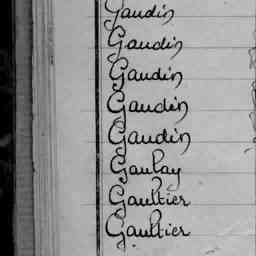 Gaudin
Gaudin
Gaudin
Gaudin
Gaudin
Gaulay
Gaultier
Gaultier